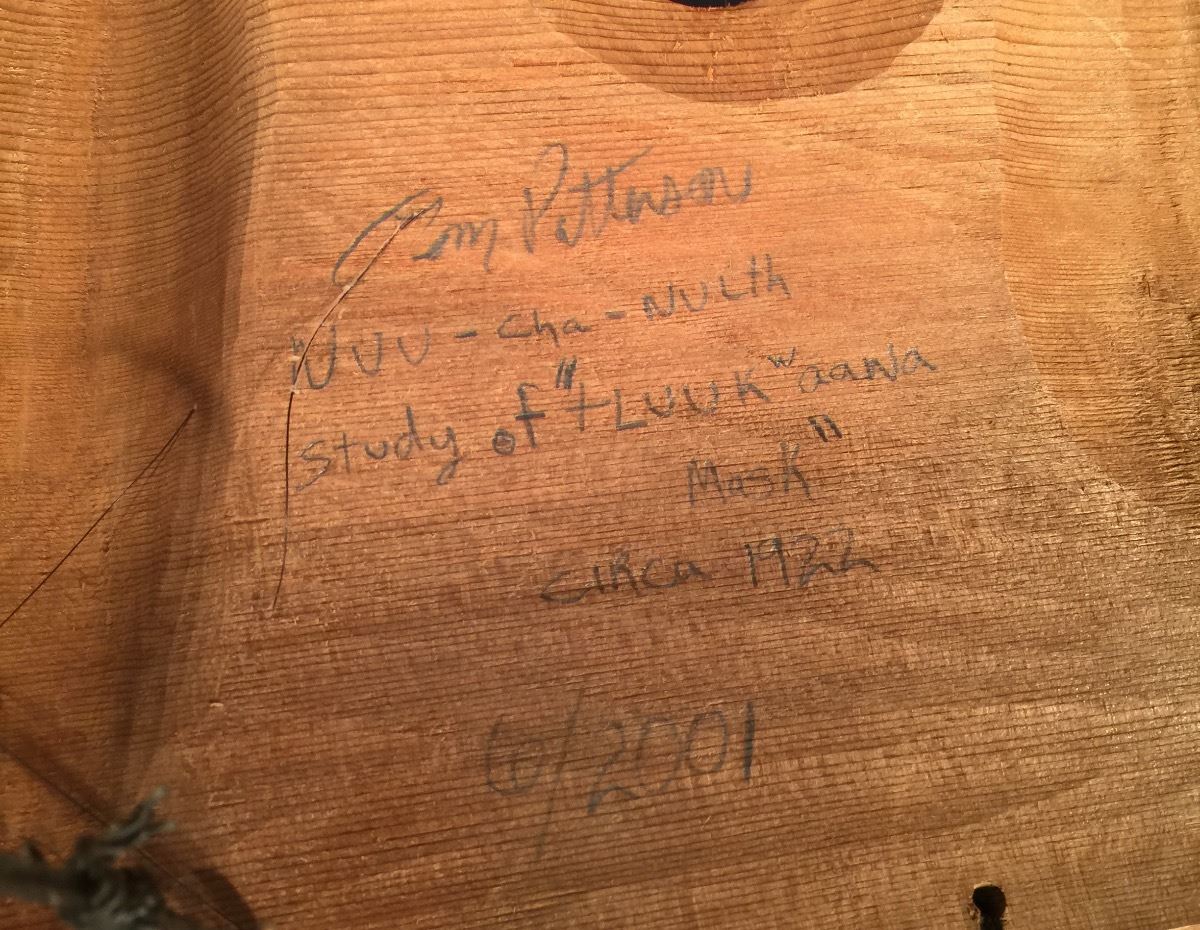 Tom Patterson
NUU-Cha-NULth
Study of "tLUUKʷaana
Mask"
CIRCa 1922
6/2001